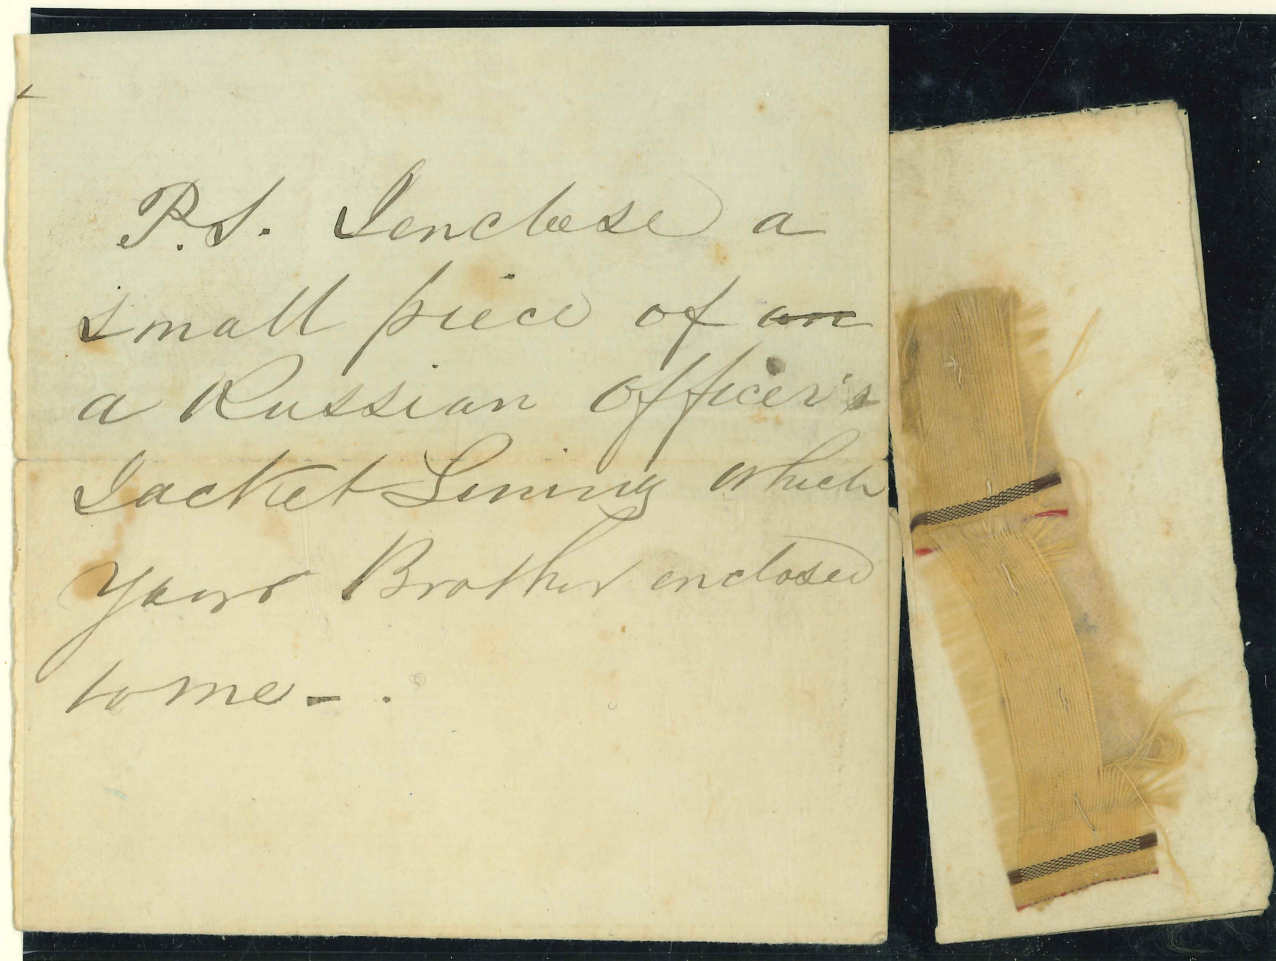 P.S. I enclose a
small piece of an
a Russian Officer's
Jacket Lining which
your Brother enclosed
to me - .